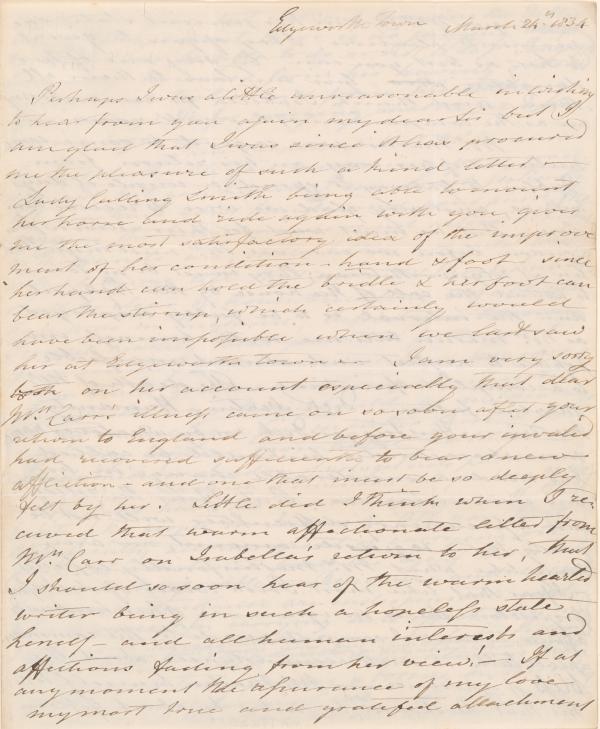 Edgeworth Town March 24th 1834
Perhaps I was a little unreasonable in wishing
to hear from you again my dear Sir but I
am glad that I was since it has procured
me the pleasure of such a kind letter –
Lady Culling Smith being able to mount
her horse and ride again with you gives
me the most satisfactory idea of the improve
ment of her condition – hand & foot since
her hand can hold the bridle & her foot can
bear the stirrup, which certainly would
have been impossible when we last saw
her at Edgeworthtown – I am very sorry
both on her account especially that dear
Mrs. Carr's illness came on so soon after your
return to England and before your invalid
had recovered sufficiently to bear a new
affliction – and one that must be so deeply
felt by her. Little did I think when I re-
ceived that warm affectionate letter from
Mrs. Carr on Isabella's return to her, that
I should so soon hear of the warm hearted
writer being in such a hopeless state
herself – and all human interests and
affections fading from her view! – If at
any moment the assurance of my love
my most true and grateful attachment